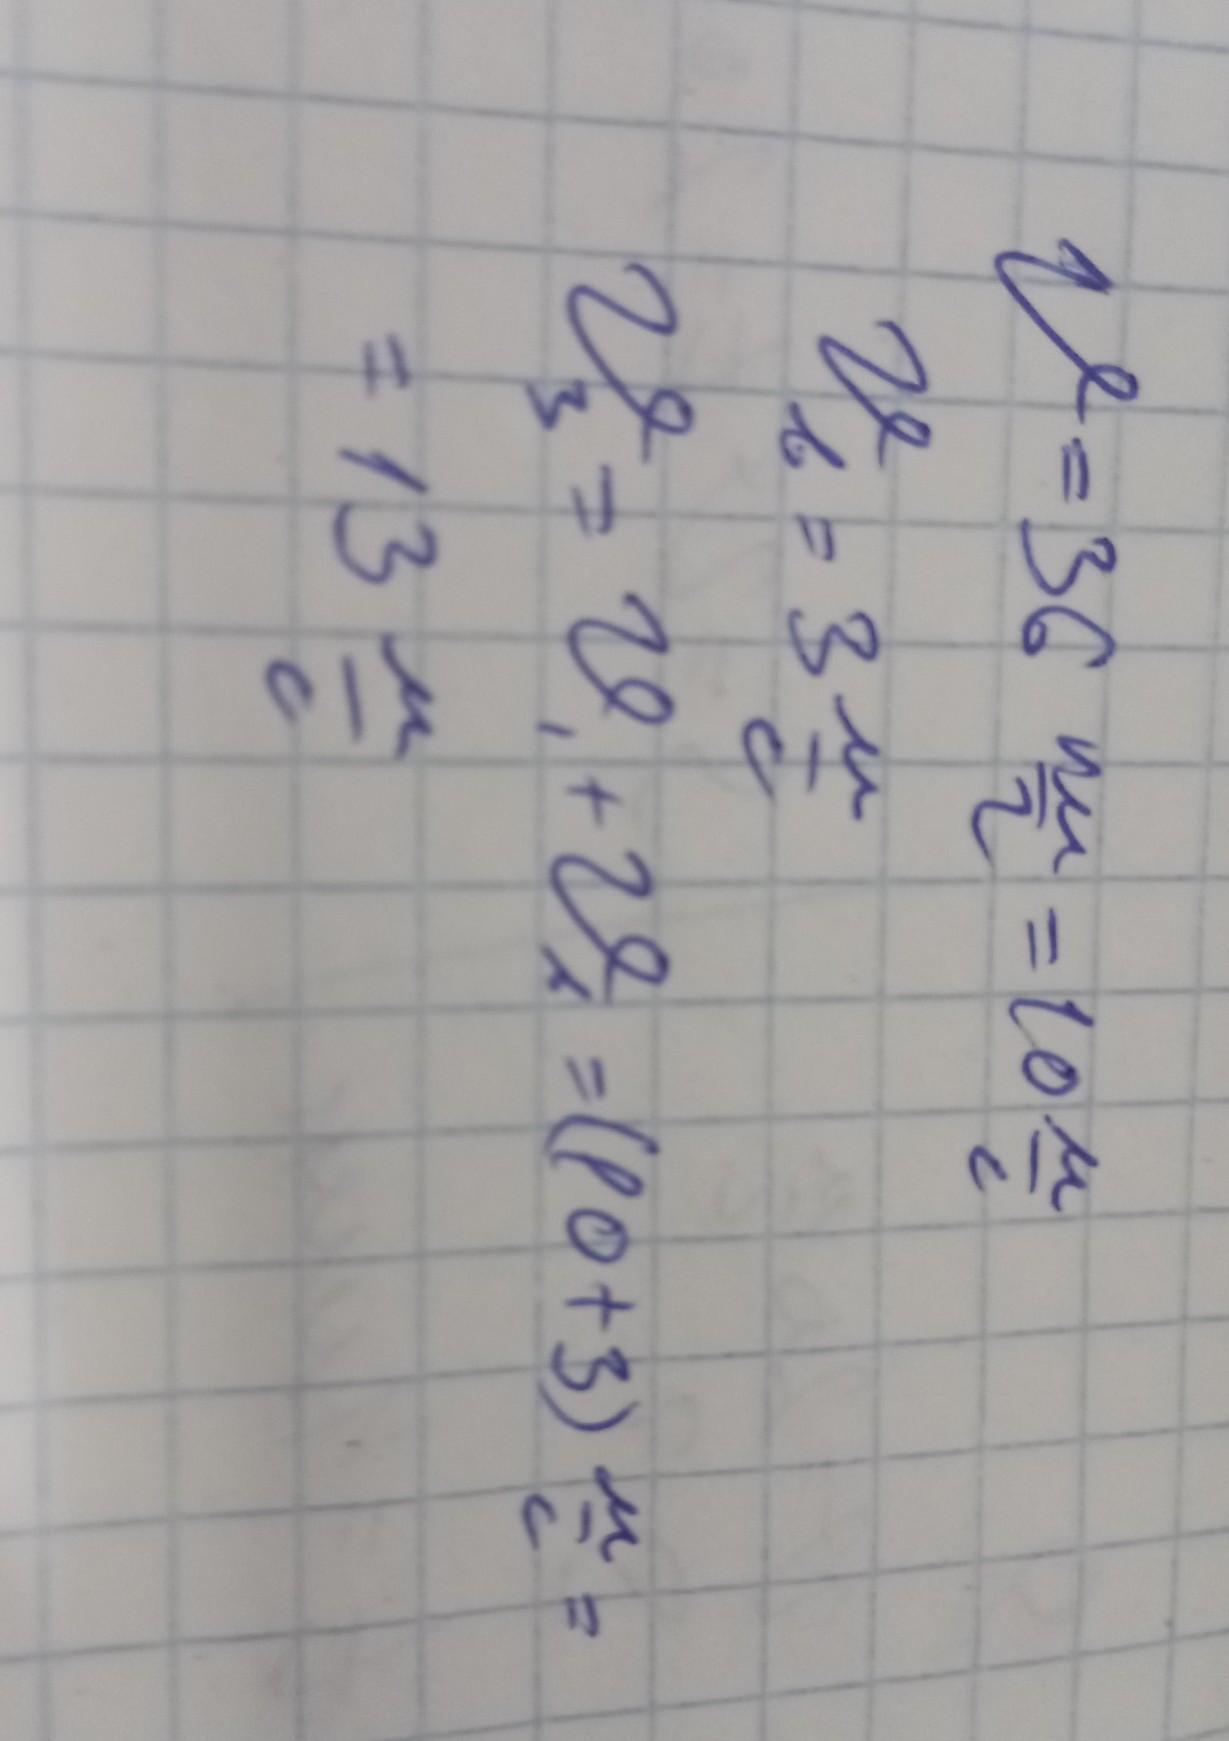 υ = 36 км/ч = 10 м/с
υ₂ = 3 м/с
υ₃ = υ₁ + υ₂ = (10 + 3) м/с =
= 13 м/с